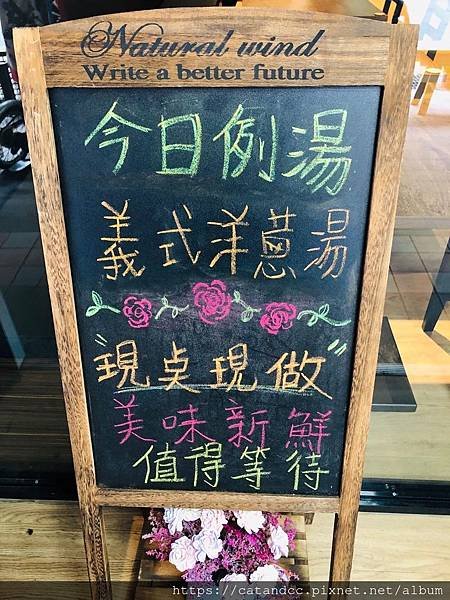 Natural wind
Write a better future
今日例湯
義式洋蔥湯
"現桌現做"
美味新鮮
值得等待
https://catandcc.pixnet.net/album